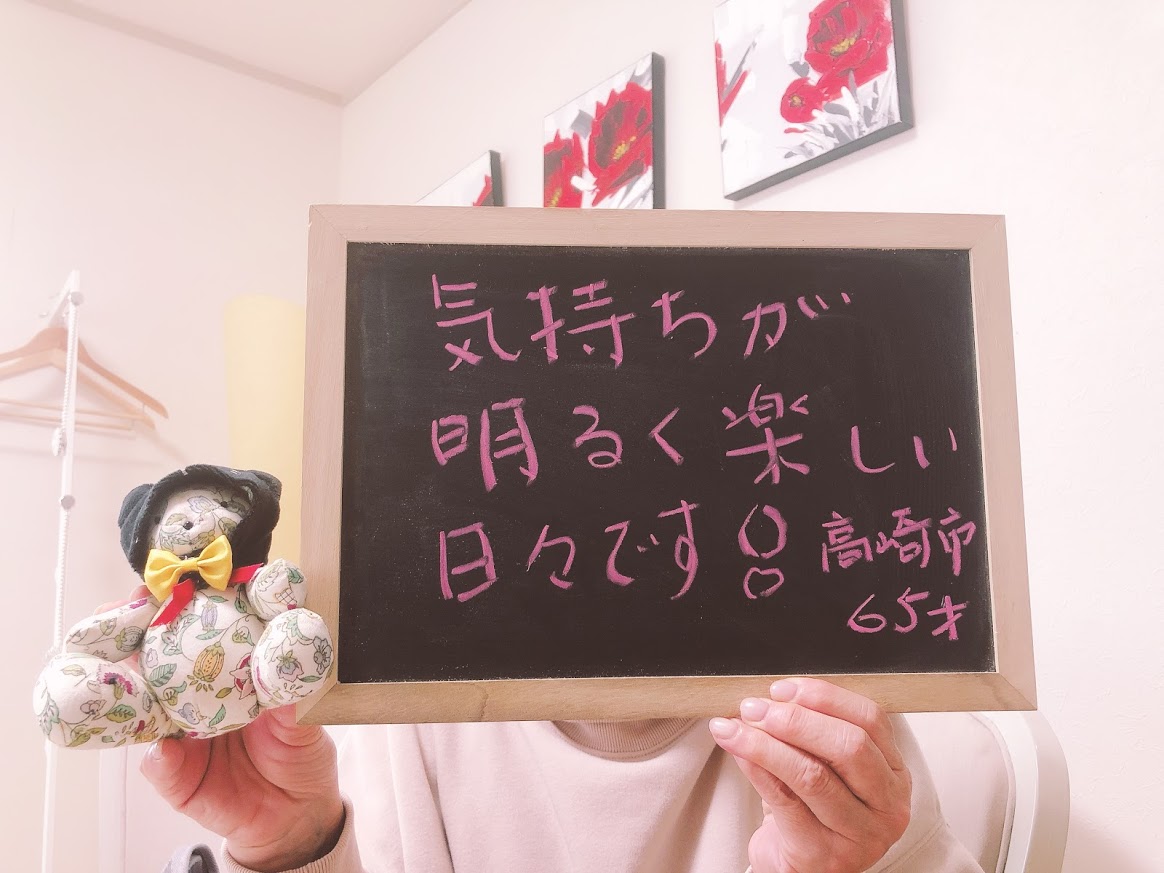 気持ちが
明るく楽しい
日々です!
高崎市
65才